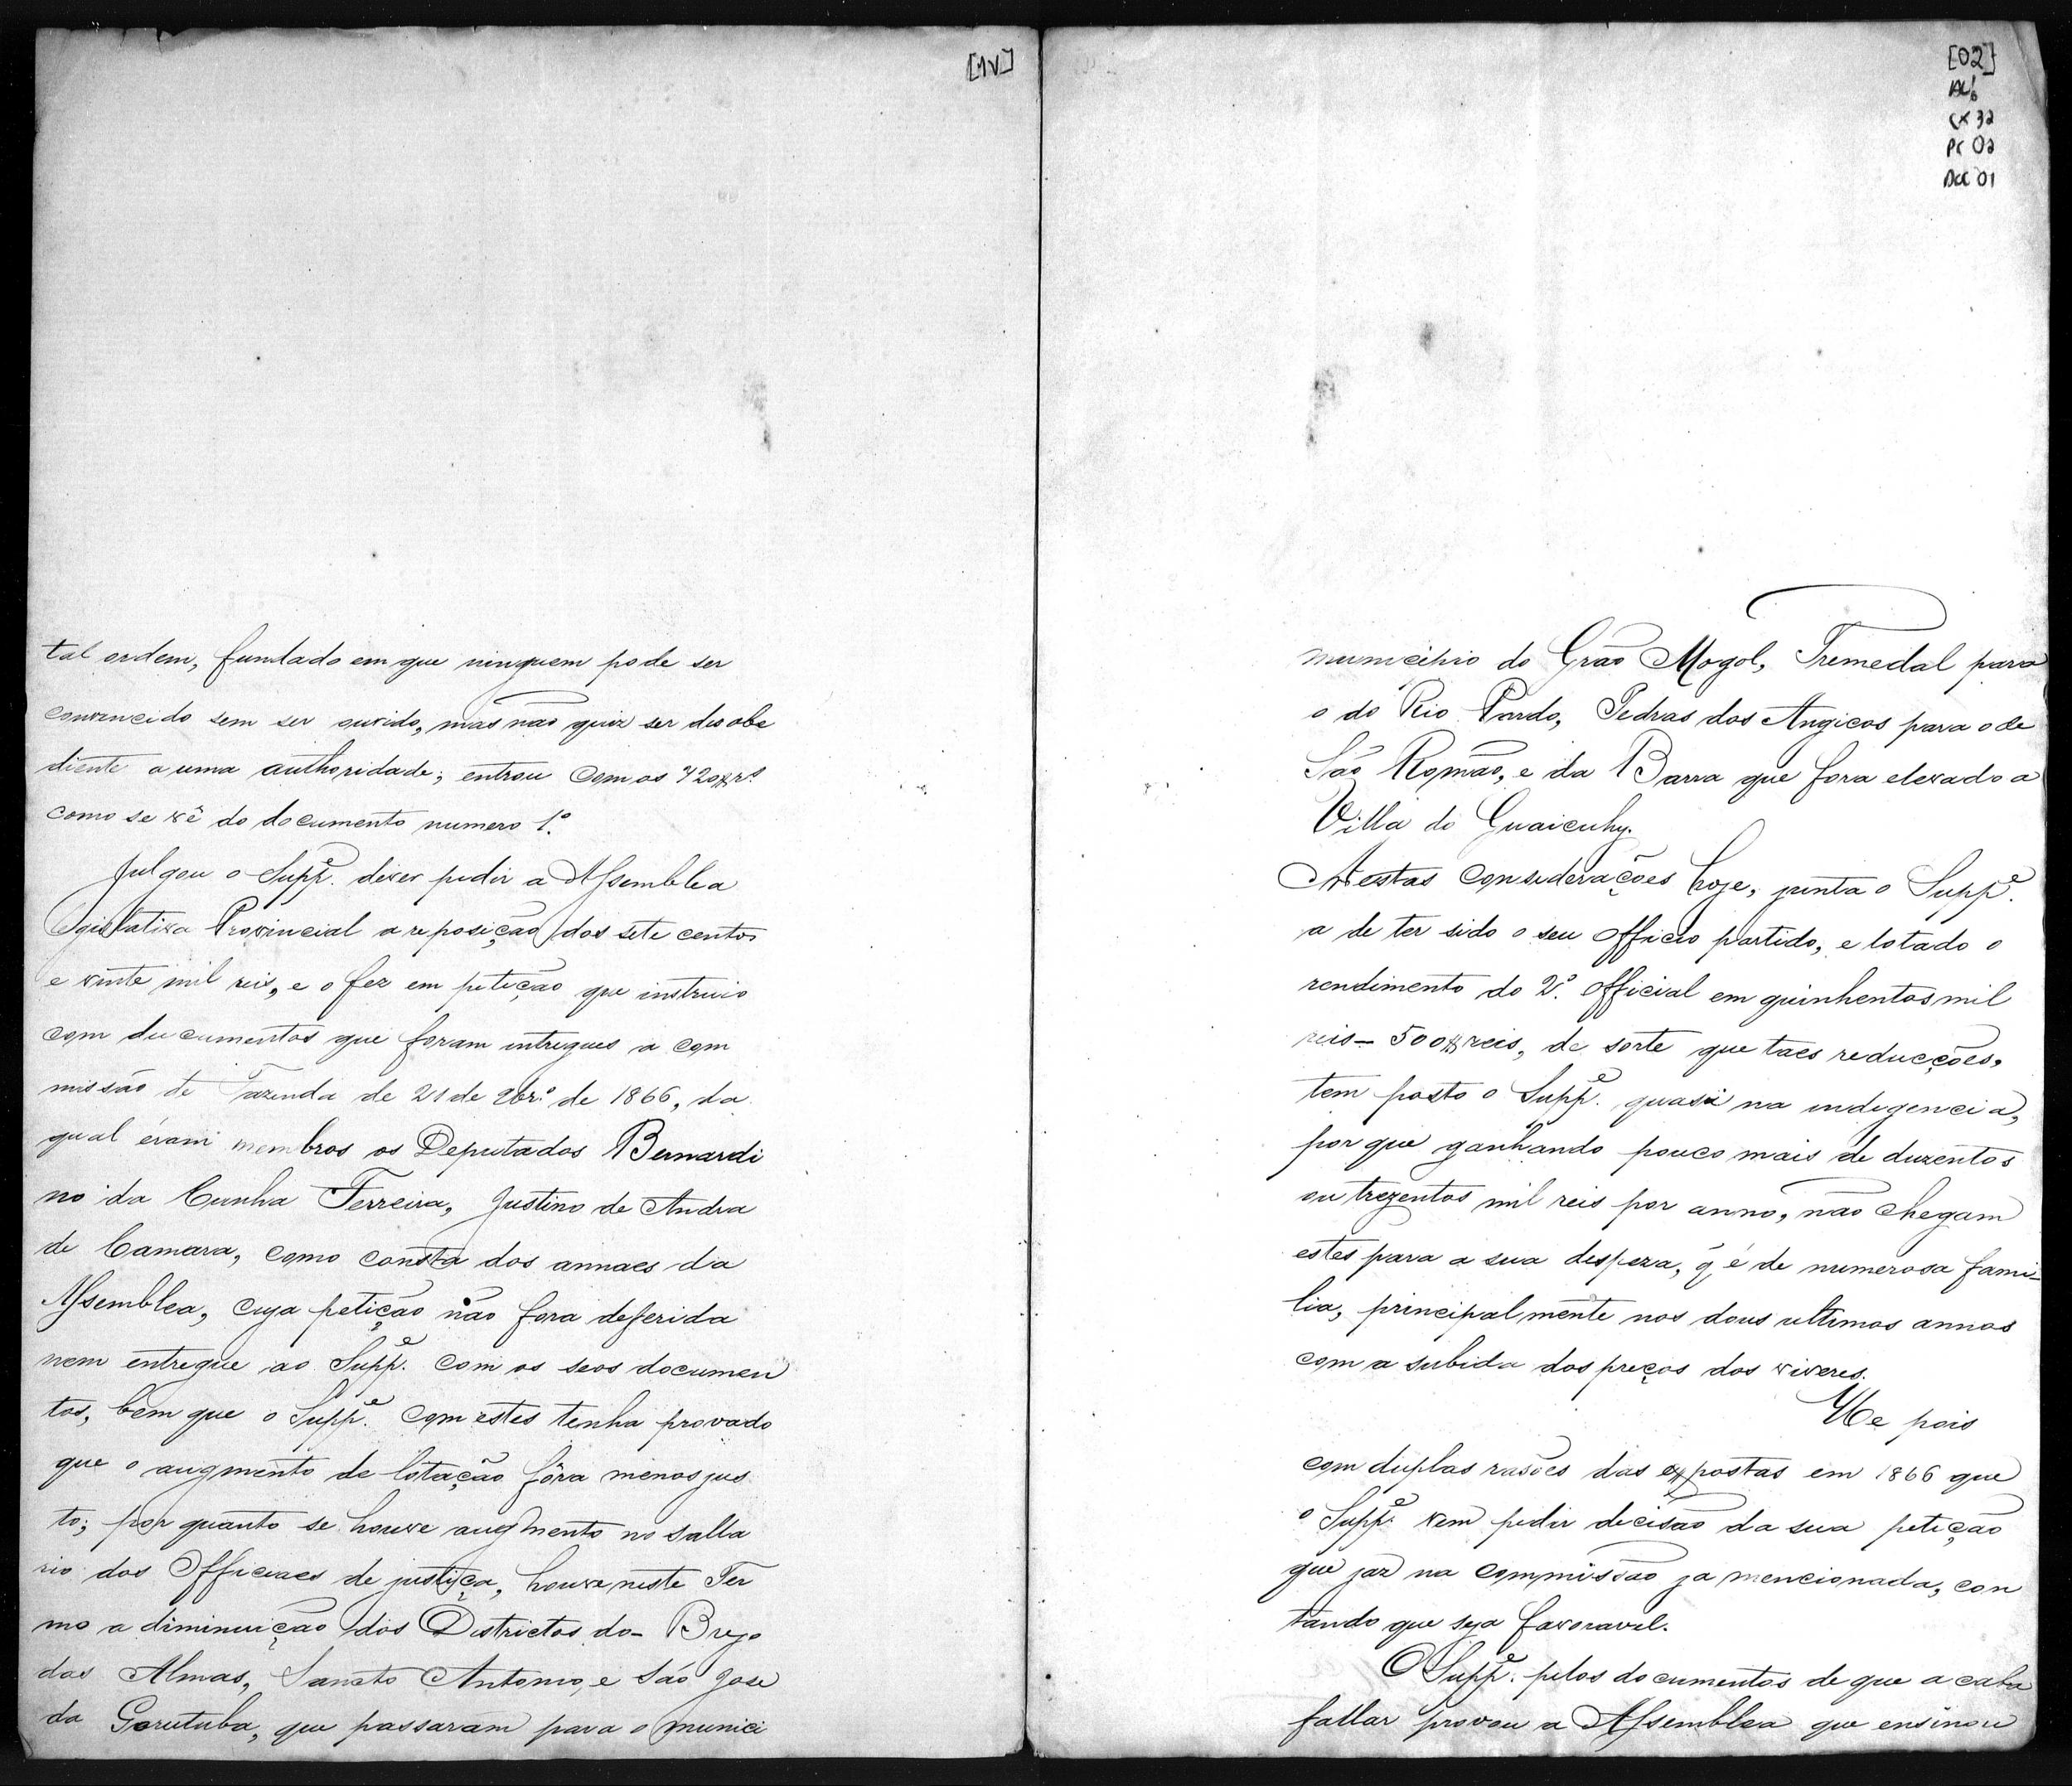 [1V]
tal ordem, fundado em que ninguem pode ser
convencido sem ser ouvido, mas não quiz ser desobe
diente a uma authoridade; entrou com os 720$rs
como se vê do documento numero 1º.
Julgou o Suppe. dever pedir a Assemblea
Legislativa Provincial a reposição dos sete centos
e vinte mil reis, e o fez em petição que instruio
com ducumentos que foram entregues a com
missão de Fazenda de 21 de 9br.º de 1866, da
qual éram membros os Deputados Bernardi
no da Cunha Ferreira, Justino de Andra
de Camara, como consta dos annaes da
Assemblea, cuja petição não fora defferida
nem entregue ao Suppe. com os seos documen
tos, bem que o Suppe. com estes tenha provado
que o augmento de lotação fôra menos jus
to; por quanto se houve augmento no salla
rio dos Officiaes de justiça, houve neste Ter
mo a diminuição dos Districtos do- Brejo
das Almas, Sancto Antonio, e São Jose
do Gorutuba, que passaram para o munici
[02]
AL6
CX 32
PC 02
Doc 01
municipio do Grão Mogol, Tremedal para
o do Rio Pardo, Pedras dos Angicos para o de
São Romão, e da Barra que fora elevado a
Villa do Guaicuhy.
A estas considerações hoje, junta o Suppe.
a de ter sido o seu officio partido, e lotado o
rendimento do 2º. Official em quinhentos mil
reis- 500$reis, de sorte que taes reducções,
tem posto o Suppe. quasi na indigencia,
por que ganhando pouco mais de duzentos
ou trezentos mil reis por anno, não chegam
estes para a sua despeza, q̃ é de numerosa fami-
lia, principalmente nos dous ultimos annos
com a subida dos preços dos viveres.
He pois
com duplas rasões das expostas em 1866 que
o Suppe. vem pedir decisão da sua petição
que jaz na commissão ja mencionada, con
tando que seja favoravel.
O Suppe. pelos documentos de que a caba
fallar provou a Assemblea que ensinou